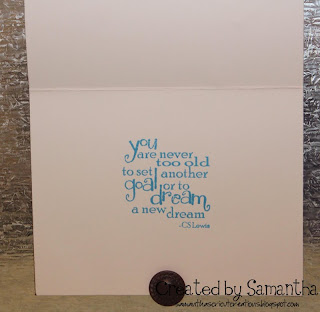 you
are never
too old
to set another
goal or to
dream
a new dream
-CS Lewis
Created by Samantha
samanthascricutcreations.blogspot.com